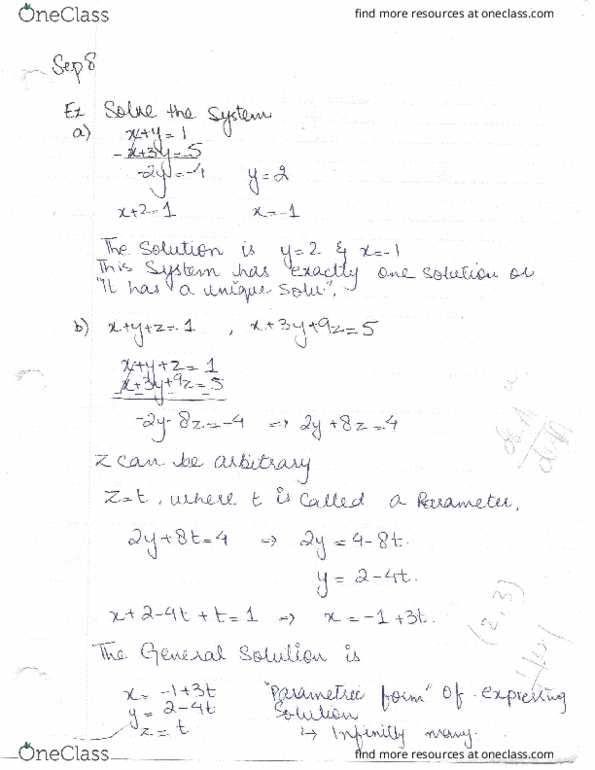 OneClass
find more resources at oneclass.com
Sep 8
Ex Solve the System
a) x+y=1
-x+3y=5
-2y=-4 y=2
x+2=1 x=-1
The Solution is y=2 & x=-1
This System has exactly one solution or
"It has a unique Solu".
b) x+y+z=1 , x+3y+9z=5
x+y+z=1
x+3y+9z=5
-2y-8z=-4 => 2y+8z=4
z can be arbitrary
z=t, where t is called a Parameter.
2y+8t=4 => 2y=4-8t.
y=2-4t.
x+2-4t+t=1 => x=-1+3t.
(2,3)
The General Solution is
x=-1+3t "Parametric form" Of expressing
y=2-4t Solution
z=t ↳ Infinitly many.
OneClass
find more resources at oneclass.com